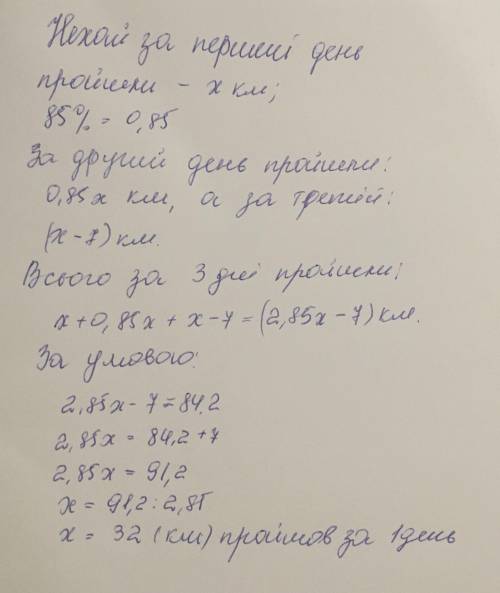 Нехай за перший день
пройшли - x км;
85% = 0,85
За другий день пройшли:
0,85x км, а за третій:
(x-7) км.
Всього за 3 дні пройшли:
x+0,85x+x-7=(2,85x-7) км.
За умовою:
2,85x-7=84,2
2,85x=84,2+7
2,85x=91,2
x=91,2:2,85
x = 32 (км) пройшов за 1 день